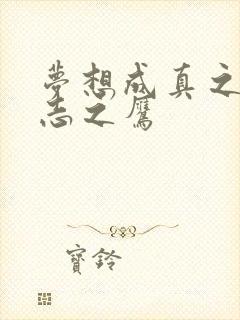 夢想成真之
志之鷹
寶鈴